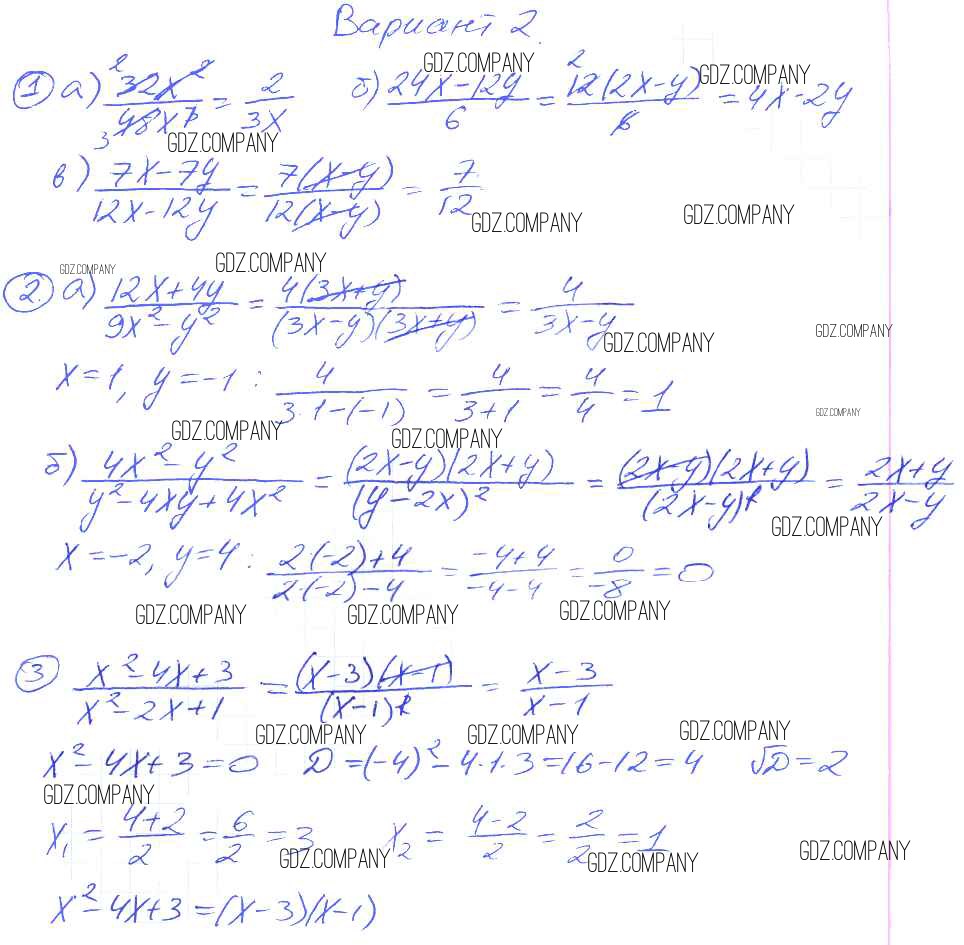 Вариант 2.
GDZ.COMPANY
① а) 32x²/48x³ = 2/3x б) (24x-12y)/6 = 12(2x-y)/6 = 4x-2y
2 3 2
GDZ.COMPANY GDZ.COMPANY
в) (7x-7y)/(12x-12y) = 7(x-y)/12(x-y) = 7/12
GDZ.COMPANY GDZ.COMPANY
GDZ.COMPANY GDZ.COMPANY
②. а) (12x+4y)/(9x²-y²) = 4(3x+y)/(3x-y)(3x+y) = 4/(3x-y)
GDZ.COMPANY GDZ.COMPANY
x=1, y=-1 : 4/(3·1-(-1)) = 4/(3+1) = 4/4 = 1
GDZ.COMPANY GDZ.COMPANY GDZ.COMPANY
б) (4x²-y²)/(y²-4xy+4x²) = (2x-y)(2x+y)/(y-2x)² = (2x-y)(2x+y)/(2x-y)² = (2x+y)/(2x-y)
GDZ.COMPANY
x=-2, y=4 : (2·(-2)+4)/(2·(-2)-4) = (-4+4)/(-4-4) = 0/-8 = 0
GDZ.COMPANY GDZ.COMPANY GDZ.COMPANY
③ (x²-4x+3)/(x²-2x+1) = (x-3)(x-1)/(x-1)² = (x-3)/(x-1)
GDZ.COMPANY GDZ.COMPANY GDZ.COMPANY
x²-4x+3=0 D=(-4)²-4·1·3=16-12=4 √D=2
GDZ.COMPANY
x₁ = (4+2)/2 = 6/2 = 3 x₂ = (4-2)/2 = 2/2 = 1
GDZ.COMPANY GDZ.COMPANY GDZ.COMPANY
x²-4x+3=(x-3)(x-1)